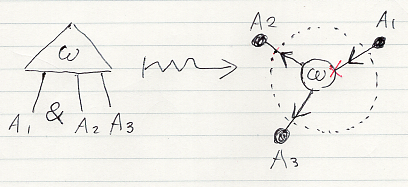 ω
A₁ & A₂ A₃
A₂ A₁
ω
A₃